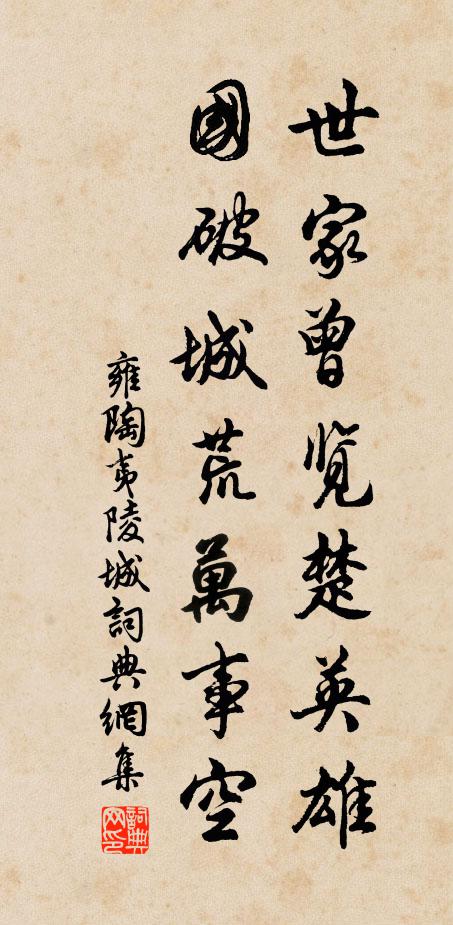 世家曾览楚英雄
國破城荒萬事空
雍陶夷陵城詞典網集
詞典网印